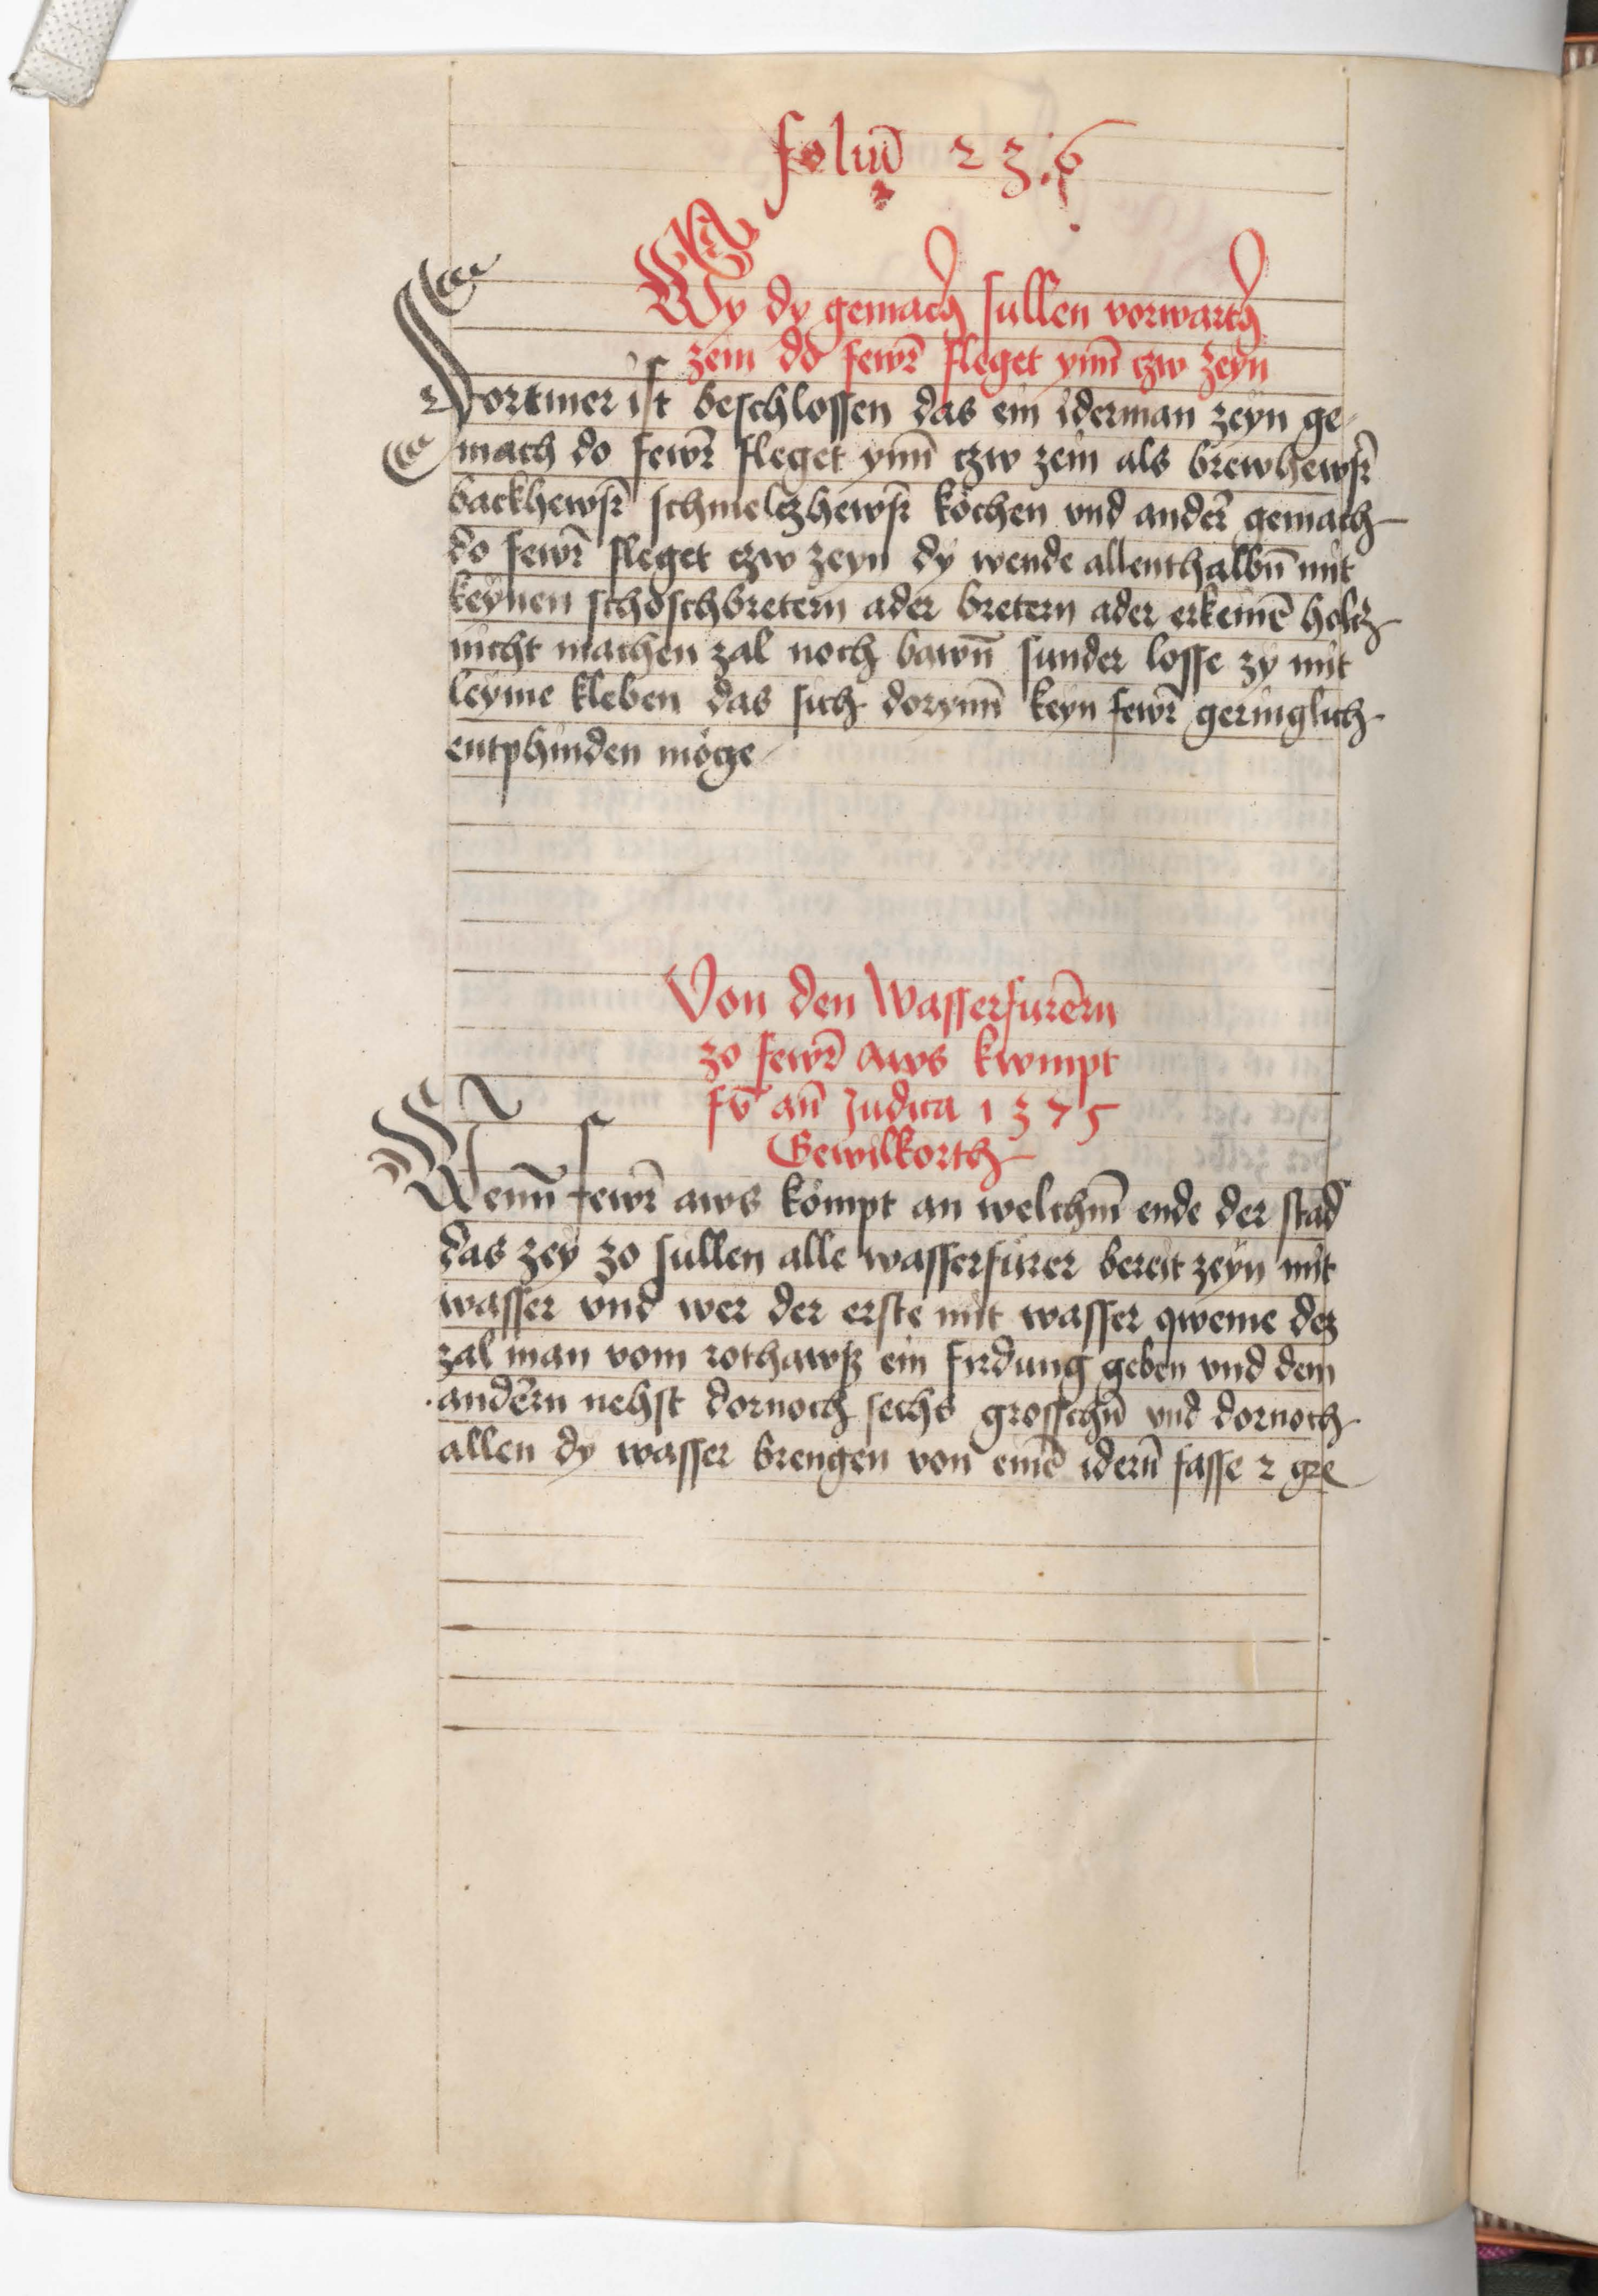 foliū 23.6
Wy dy gemach sullen vorwarth
zein do fewr̄ fleget ynn̄ czw zeyn
Vortmer ist beschlossen das ein iderman zeyn ge-
mach do fewr̄ fleget ynn̄ czw zein als brewhewsr̄
backhewsr̄ schmelczhewsr̄ kochen vnd ander̄ gemach
do fewr̄ fleget czw zeyn dy wende allenthalbn̄ mit
keynen schoschbretern ader bretern ader erkeinē holcz
nicht machen zal noch bawn̄ sunder losse zy mit
leyme kleben das sich dorynn̄ keyn fewr̄ geringlich
entphinden möge
Von den Wasserfurērn
zo fewr̄ aws kwmpt
an̄ Judica 1375
Gewilkorth
Wenn̄ fewr̄ aws kömpt an welchm̄ ende der stad
das zey zo sullen alle wasserfürer bereit zeyn mit
wasser vnd wer der erste mit wasser qweme dez
zal man vom rothawsz ein firdung geben vnd dem
andērn nehst dornoch sechs grosschn̄ vnd dornoch
allen dy wasser brengen von einē idern̄ fasse 2 gre